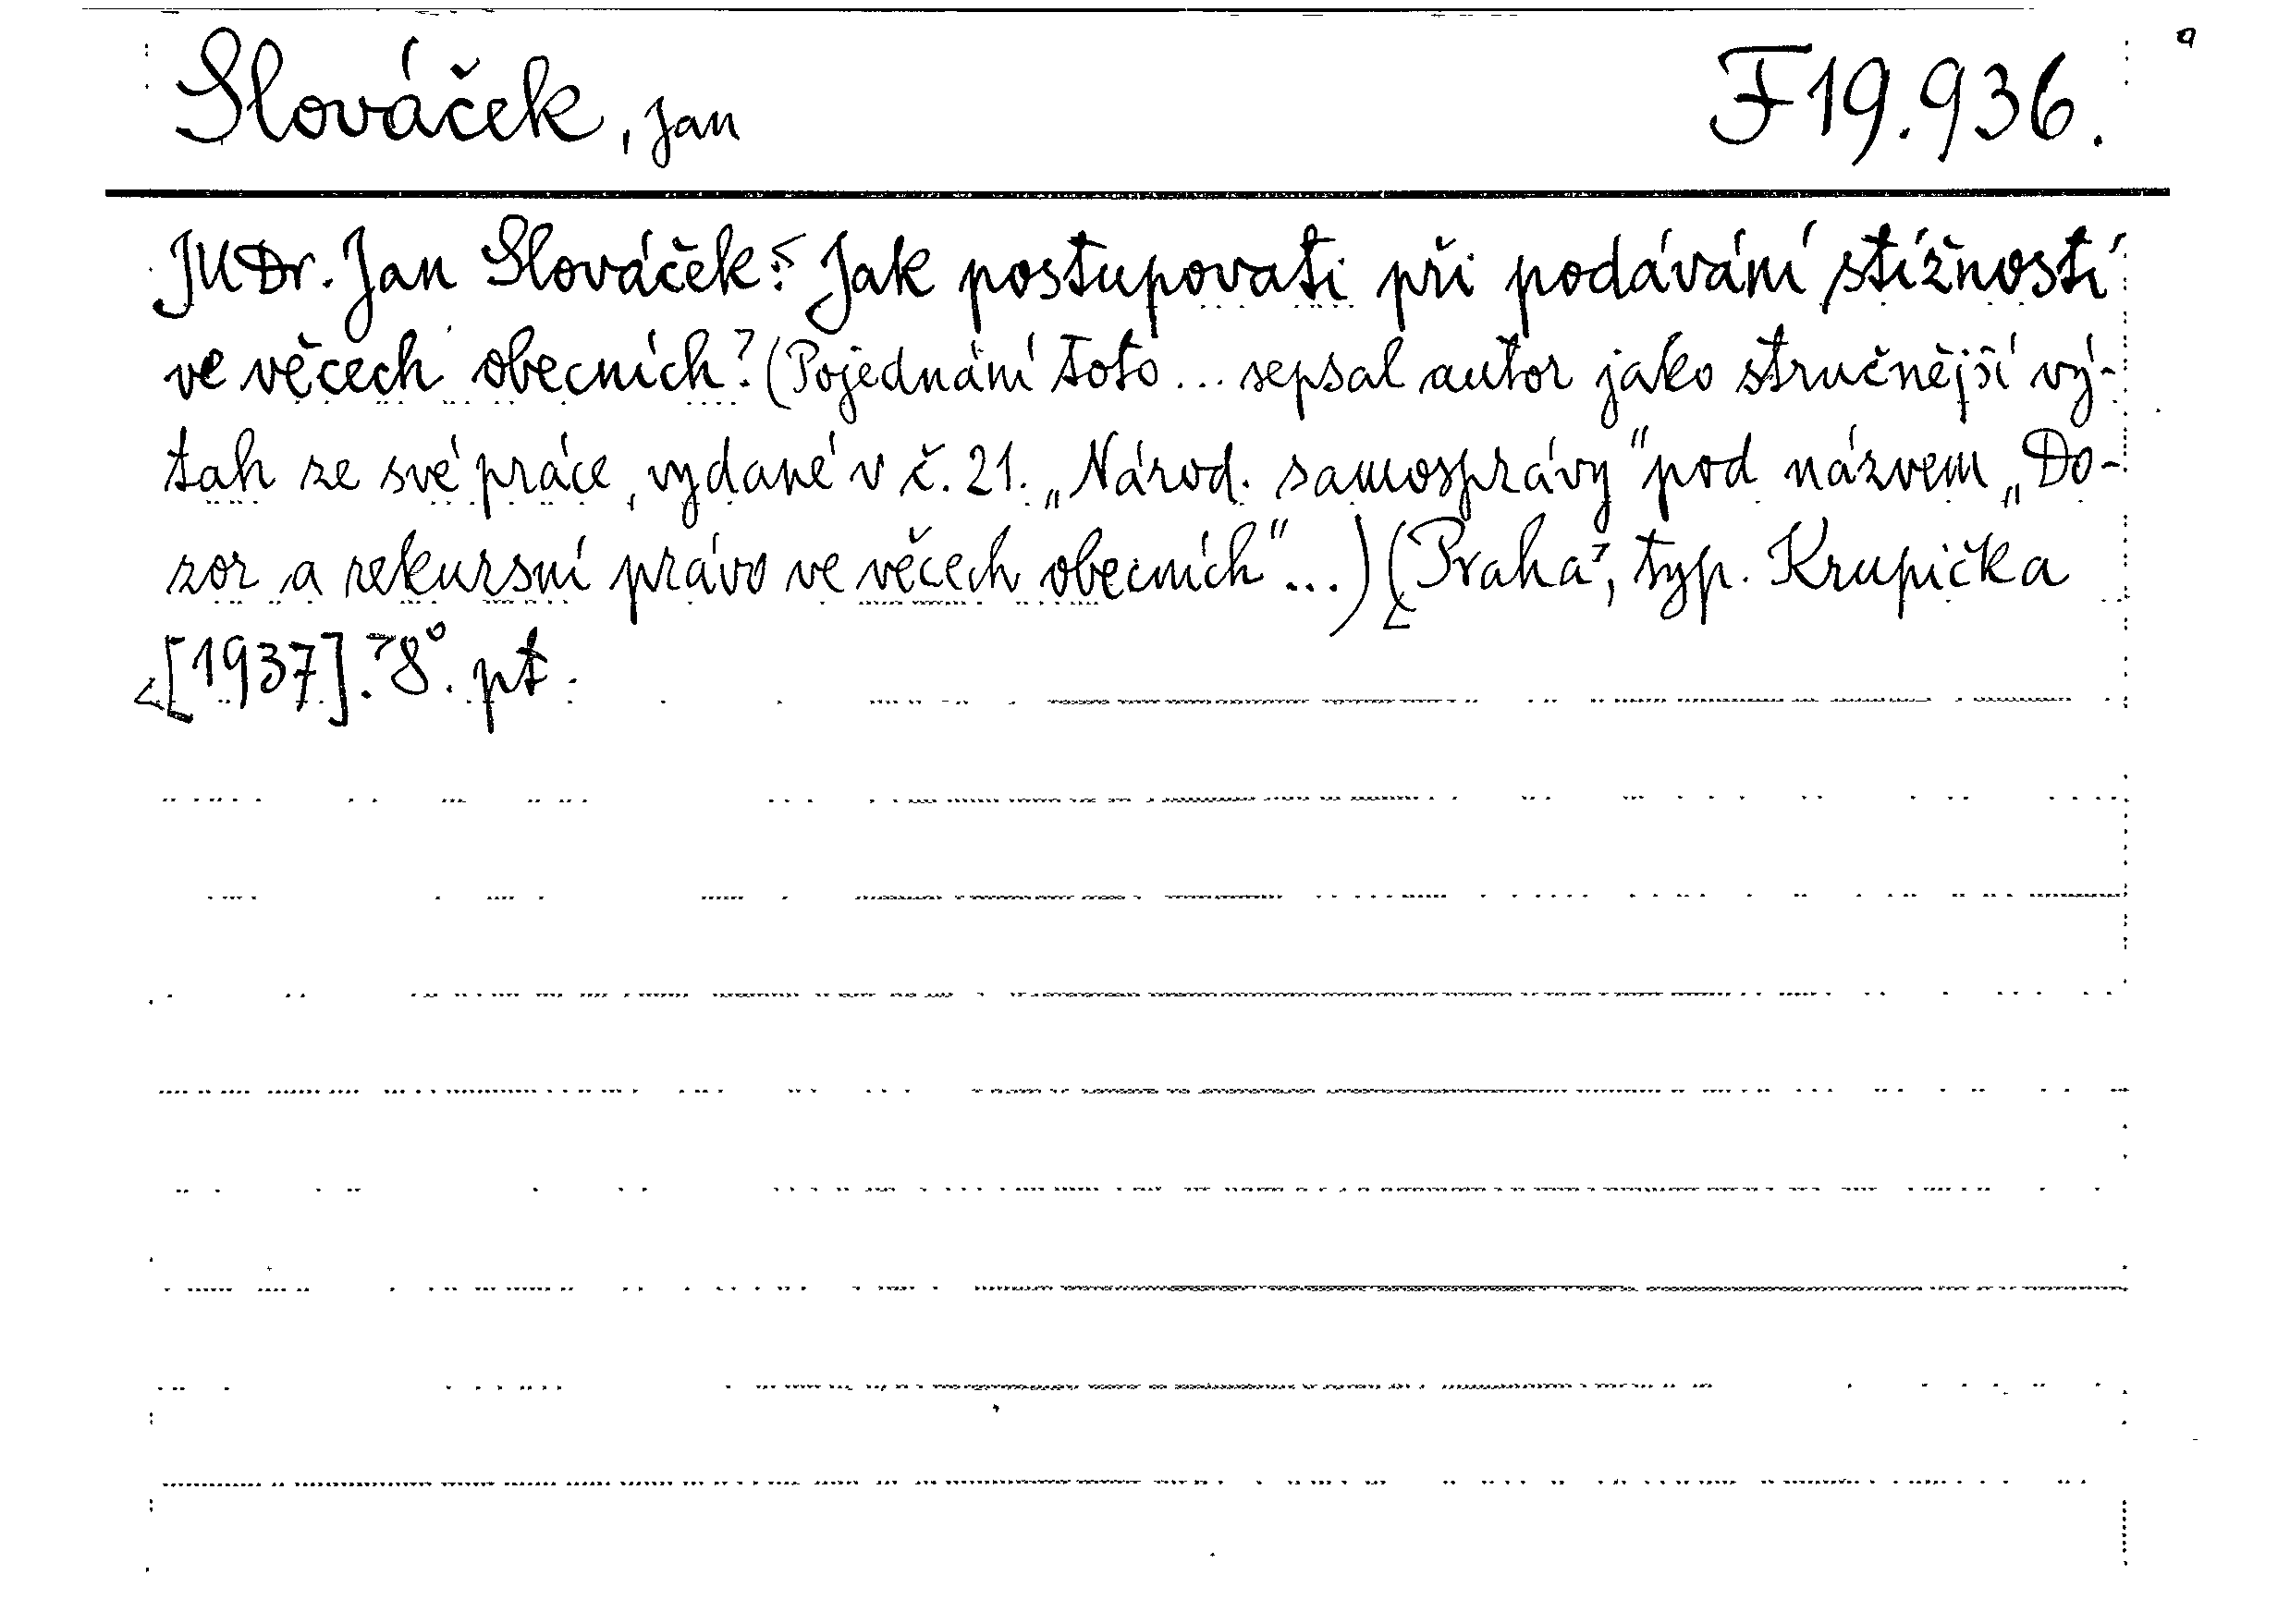 Slováček, Jan F 19.936.
JUDr. Jan Slováček: Jak postupovati při podávání stížností
ve věcech obecních? (Pojednání toto ... sepsal autor jako stručnější vý-
tah ze své práce, vydané v č. 21. „Národ. samosprávy" pod názvem „Do-
zor a rekursní právo ve věcech obecních"...) (Praha, typ. Krupička
[1937]. 8°. pt.